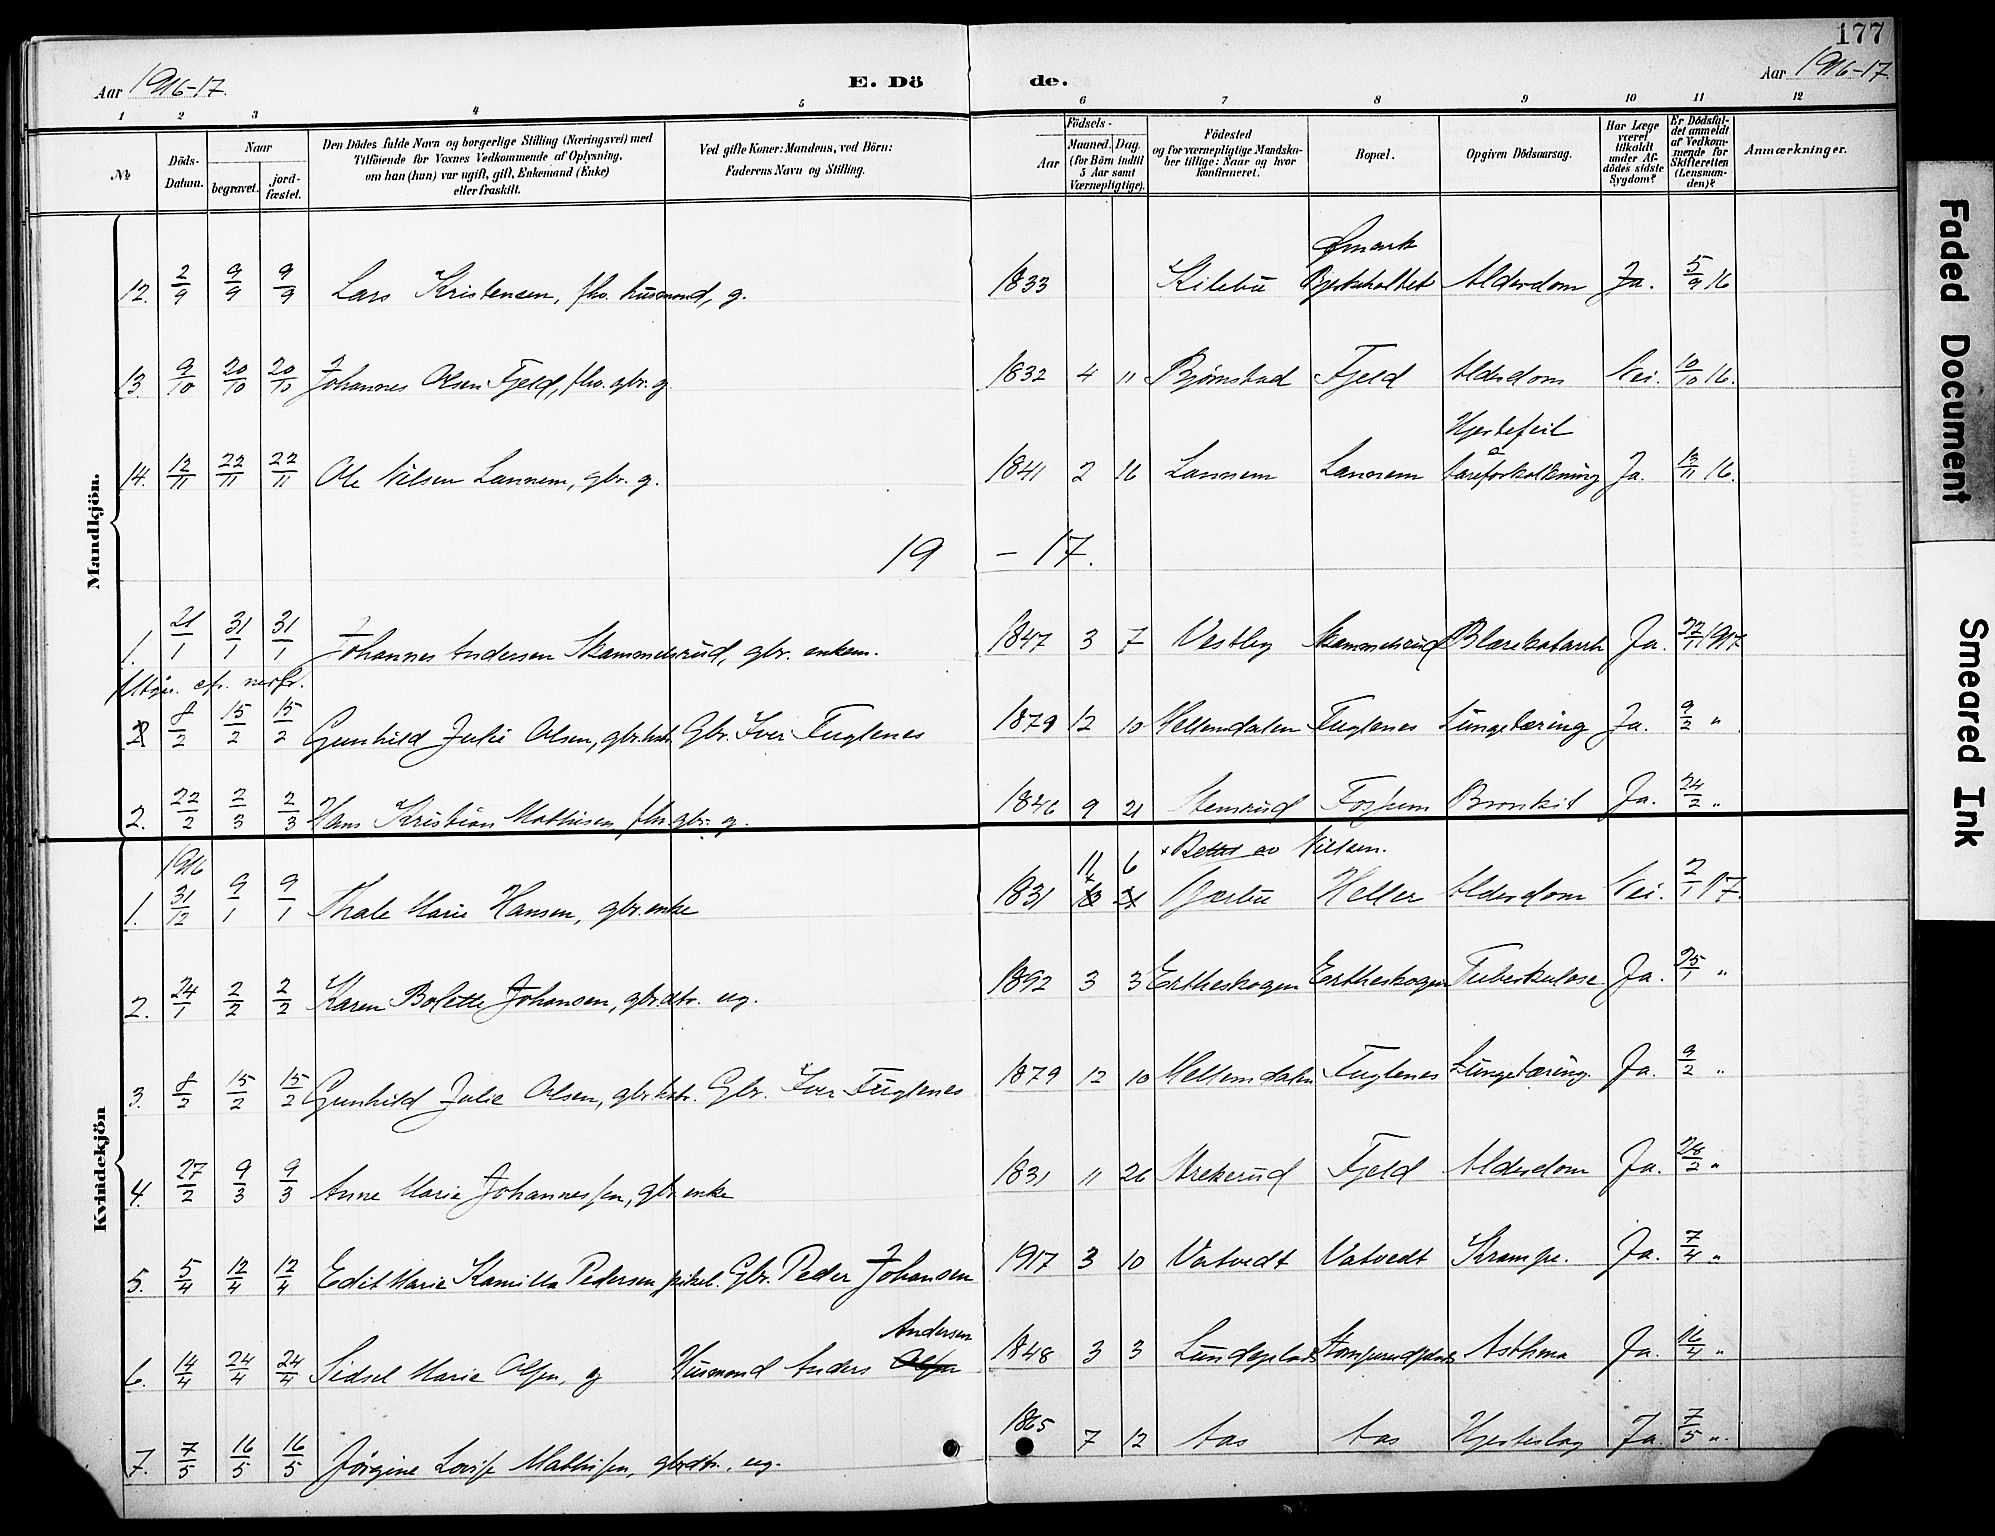 177
Aar 1916-17.
E. Döde.
Aar 1916-17.
1 2 3 4 5 6 7 8 9 10 11 12
No
Döds-Datum.
Naar begravet. jordfæstet.
Den Dödes fulde Navn og borgerlige Stilling (Næringsvei) med Tilföiende for Voxnes Vedkommende af Oplysning, om han (hun) var ugift, gift, Enkemand (Enke) eller fraskilt.
Ved gifte Koner: Mandens, ved Börn: Faderens Navn og Stilling.
Födsels- Aar Maaned. Dag. (for Börn indtil 5 Aar samt Værnepligtige).
Födested og for værnepligtige Mandskaber tillige: Naar og hvor konfirmeret.
Bopæl.
Opgiven Dödsaarsag.
Har Læge været tilkaldt under Afdödes sidste Sygdom?
Er Dödsfaldet anmeldt af Vedkommende for Skifteretten (Lensmanden)?
Anmærkninger.
Mandkjön.
12. 2/9 9/9 9/9 Lars Kristensen, fhv. husmand, g. 1833 Kilebu Ømark Bjerkeholtet Alderdom Ja. 5/9 16
13. 9/10 20/10 20/10 Johannes Olsen Fjeld, fhv. gbr. g 1832 4 11 Bjørnstad Fjeld Alderdom Nei. 10/10 16.
14. 12/11 22/11 22/11 Ole Nilsen Lannem, gbr. g. 1841 2 16 Lannem Lannem Hjertefeil o. aareforkalkning Ja. 13/11 16.
19 - 17.
1. 21/1 31/1 31/1 Johannes Andersen Skammelsrud, gbr. enkem. 1847 3 7 Vestby Skammelsrud Blærekatarrh Ja. 22/1 1917
Utgaar. cfr. nedfr.
2 8/2 15/2 15/2 Gunhild Julie Olsen, gbr.kstr. Gbr. Iver Fuglenes 1879 12 10 Hellemdalen Fuglenes Lungetæring Ja. 9/2 "
2. 22/2 2/3 2/3 Hans Kristian Mathisen, fhv. gbr. g. 1846 9 21 Stensrud Fosjum Bronkit Ja. 24/2 "
Kvindekjön
1. 1916 31/12 9/1 9/1 Thale Marie Hansen, gbr.enke 1831 11 6 Gjøsbu Heller Alderdom Nei. 2/1 17.
2. 24/1 2/2 2/2 Karen Bolette Johansen, gbr.dtr. ug. 1892 3 3 Ertheskogen Ertheskogen Tuberkulose Ja. 25/1 "
3. 8/2 15/2 15/2 Gunhild Julie Olsen, gbr.kstr. Gbr. Iver Fuglenes 1879 12 10 Hellemdalen Fuglenes Lungetæring. Ja. 9/2 "
4. 27/2 9/3 9/3 Anne Marie Johannessen, gbr enke 1831 11 26 Strekerud Fjeld Alderdom Ja. 28/2 "
5. 5/4 12/4 12/4 Edit Marie Kamilla Pedersen, pikeb. Gbr. Peder Johansen 1917 3 10 Vatvedt Vatvedt Krampe. Ja. 7/4 "
6. 14/4 24/4 24/4 Sidsel Marie Olsen, g Husmand Anders Olsen Andersen 1848 3 3 Lundeplads Stomperudplads Asthma Ja. 16/4 "
7. 7/5 16/5 16/5 Jørgine Lovise Mathisen, gbrdtr. ug. 1865 7 12 Aas Aas Hjerteslag Ja. 7/5 "
Faded Document
Smeared Ink